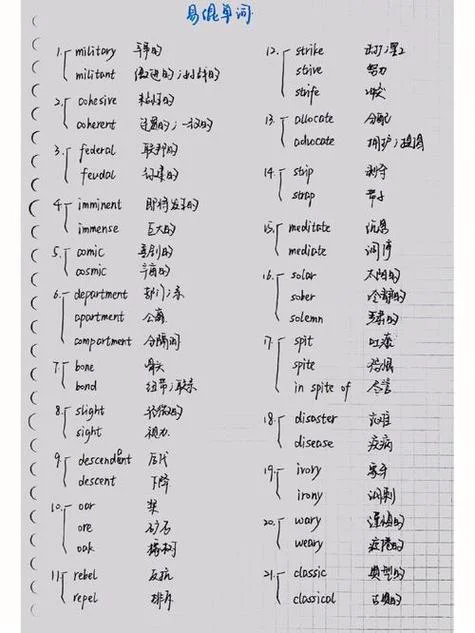 易混单词
1. military 军事的
militant 激进的;好战的
2. cohesive 粘性的
coherent 连贯的;一致的
3. federal 联邦的
feudal 封建的
4. imminent 即将发生的
immense 巨大的
5. comic 喜剧的
cosmic 宇宙的
6. department 部门;系
apartment 公寓
compartment 分隔间
7. bone 骨头
bond 纽带;联系
8. slight 轻微的
sight 视力
9. descendant 后代
descent 下降
10. oar 桨
ore 矿石
oak 橡树
11. rebel 反抗
repel 排斥
12. strike 打;罢工
strive 努力
strife 冲突
13. allocate 分配
advocate 拥护;提倡
14. strip 剥夺
strap 带子
15. meditate 沉思
mediate 调停
16. solar 太阳的
sober 冷静的
solemn 严肃的
17. spit 吐痰
spite 怨恨
in spite of 尽管
18. disaster 灾难
disease 疾病
19. ivory 象牙
irony 讽刺
20. wary 谨慎的
weary 疲倦的
21. classic 典型的
classical 古典的